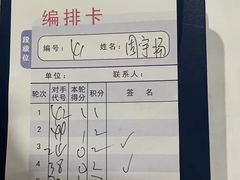 编排卡
段级位
编号: 41 姓名: 周宇扬
单位: 联系人:
轮次 对手代号 本轮得分 积分 签名
1 42 1 1
2 1 2
3 0 2
4 38 0 2